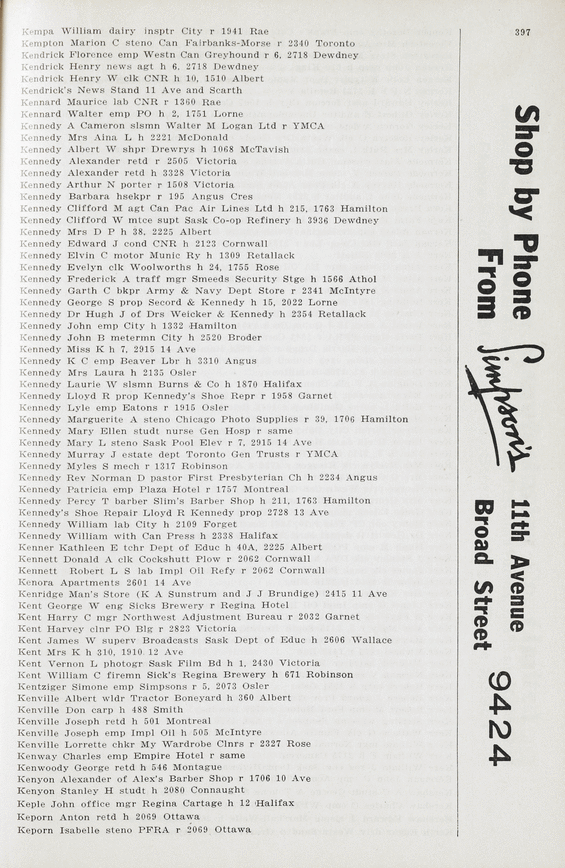 Kempa William dairy insptr City r 1941 Rae
Kempton Marion C steno Can Fairbanks-Morse r 2340 Toronto
Kendrick Florence emp Westn Can Greyhound r 6, 2718 Dewdney
Kendrick Henry news agt h 6, 2718 Dewdney
Kendrick Henry W clk CNR h 10, 1510 Albert
Kendrick's News Stand 11 Ave and Scarth
Kennard Maurice lab CNR r 1360 Rae
Kennard Walter emp PO h 2, 1751 Lorne
Kennedy A Cameron slsmn Walter M Logan Ltd r YMCA
Kennedy Mrs Aina L h 2221 McDonald
Kennedy Albert W shpr Drewrys h 1068 McTavish
Kennedy Alexander retd r 2505 Victoria
Kennedy Alexander retd h 3328 Victoria
Kennedy Arthur N porter r 1508 Victoria
Kennedy Barbara hsekpr r 195 Angus Cres
Kennedy Clifford M agt Can Pac Air Lines Ltd h 215, 1763 Hamilton
Kennedy Clifford W mtce supt Sask Co-op Refinery h 3936 Dewdney
Kennedy Mrs D P h 38, 2225 Albert
Kennedy Edward J cond CNR h 2123 Cornwall
Kennedy Elvin C motor Munic Ry h 1309 Retallack
Kennedy Evelyn clk Woolworths h 24, 1755 Rose
Kennedy Frederick A traff mgr Smeeds Security Stge h 1566 Athol
Kennedy Garth C bkpr Army & Navy Dept Store r 2341 McIntyre
Kennedy George S prop Secord & Kennedy h 15, 2022 Lorne
Kennedy Dr Hugh J of Drs Weicker & Kennedy h 2354 Retallack
Kennedy John emp City h 1332 Hamilton
Kennedy John B metermn City h 2520 Broder
Kennedy Miss K h 7, 2915 14 Ave
Kennedy K C emp Beaver Lbr h 3310 Angus
Kennedy Mrs Laura h 2135 Osler
Kennedy Laurie W slsmn Burns & Co h 1870 Halifax
Kennedy Lloyd R prop Kennedy's Shoe Repr r 1958 Garnet
Kennedy Lyle emp Eatons r 1915 Osler
Kennedy Marguerite A steno Chicago Photo Supplies r 39, 1706 Hamilton
Kennedy Mary Ellen studt nurse Gen Hosp r same
Kennedy Mary L steno Sask Pool Elev r 7, 2915 14 Ave
Kennedy Murray J estate dept Toronto Gen Trusts r YMCA
Kennedy Myles S mech r 1317 Robinson
Kennedy Rev Norman D pastor First Presbyterian Ch h 2234 Angus
Kennedy Patricia emp Plaza Hotel r 1757 Montreal
Kennedy Percy T barber Slim's Barber Shop h 211, 1763 Hamilton
Kennedy's Shoe Repair Lloyd R Kennedy prop 2728 13 Ave
Kennedy William lab City h 2109 Forget
Kennedy William with Can Press h 2338 Halifax
Kenner Kathleen E tchr Dept of Educ h 40A, 2225 Albert
Kennett Donald A clk Cockshutt Plow r 2062 Cornwall
Kennett Robert L S lab Impl Oil Refy r 2062 Cornwall
Kenora Apartments 2601 14 Ave
Kenridge Man's Store (K A Sunstrum and J J Brundige) 2415 11 Ave
Kent George W eng Sicks Brewery r Regina Hotel
Kent Harry C mgr Northwest Adjustment Bureau r 2032 Garnet
Kent Harvey clnr PO Blg r 2823 Victoria
Kent James W superv Broadcasts Sask Dept of Educ h 2606 Wallace
Kent Mrs K h 310, 1910 12 Ave
Kent Vernon L photogr Sask Film Bd h 1, 2430 Victoria
Kent William C firemn Sick's Regina Brewery h 671 Robinson
Kentziger Simone emp Simpsons r 5, 2073 Osler
Kenville Albert wldr Tractor Boneyard h 360 Albert
Kenville Don carp h 488 Smith
Kenville Joseph retd h 501 Montreal
Kenville Joseph emp Impl Oil h 505 McIntyre
Kenville Lorrette chkr My Wardrobe Clnrs r 2327 Rose
Kenway Charles emp Empire Hotel r same
Kenwoody George retd h 546 Montague
Kenyon Alexander of Alex's Barber Shop r 1706 10 Ave
Kenyon Stanley H studt h 2080 Connaught
Keple John office mgr Regina Cartage h 12 Halifax
Keporn Anton retd h 2069 Ottawa
Keporn Isabelle steno PFRA r 2069 Ottawa
397
Shop by Phone
From
Simpson's
11th Avenue
Broad Street
9424